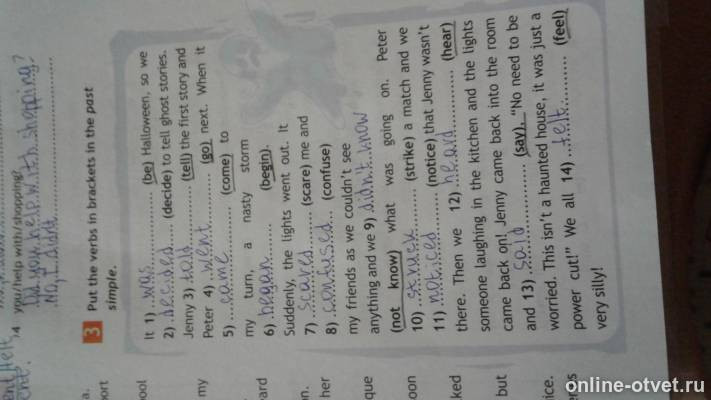 14 you/help with/shopping?
Did you help with shopping?
No, I didnt
3 Put the verbs in brackets in the past
simple.
It 1) was (be) Halloween, so we
2) decided (decide) to tell ghost stories.
Jenny 3) told (tell) the first story and
Peter 4) went (go) next. When it
5) came (come) to
my turn, a nasty storm
6) began (begin).
Suddenly, the lights went out. It
7) scared (scare) me and
8) confused (confuse)
my friends as we couldn't see
anything and we 9) didn't know
(not know) what was going on. Peter
10) struck (strike) a match and we
11) noticed (notice) that Jenny wasn't
there. Then we 12) heard (hear)
someone laughing in the kitchen and the lights
came back on! Jenny came back into the room
and 13) said (say). "No need to be
worried. This isn't a haunted house, it was just a
power cut!" We all 14) felt (feel)
very silly!
a.
port
ool
my
ard
on.
her
que
oon
ked
but
ice.
online-otvet.ru